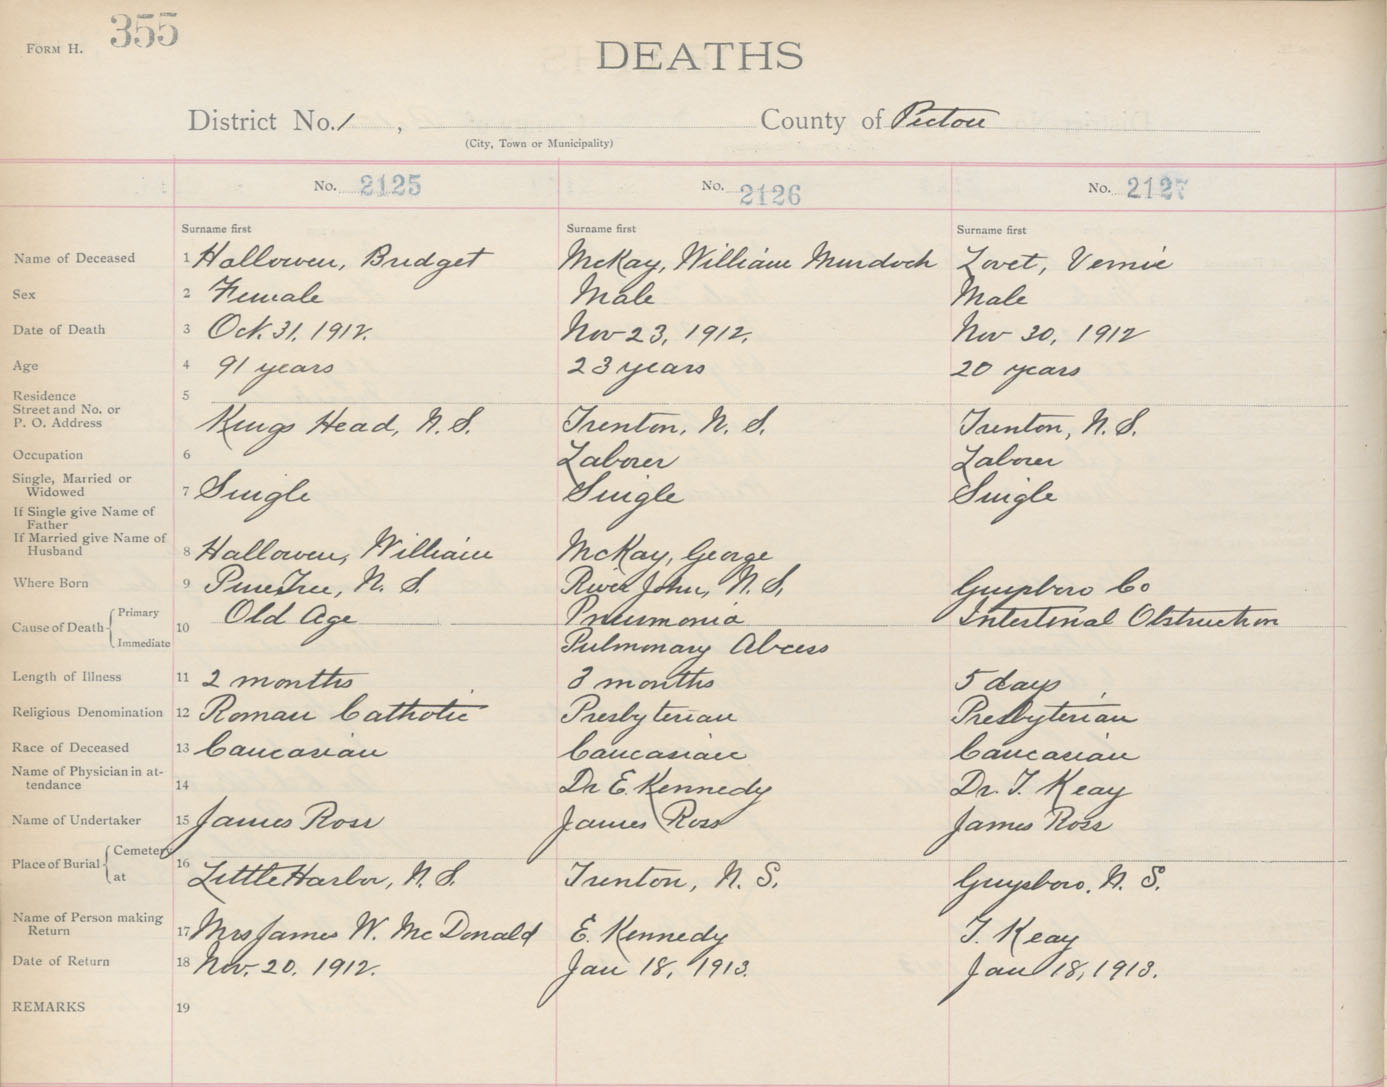 FORM H. 355
DEATHS
District No. 1, County of Pictou
(City, Town or Municipality)
No. 2125 No. 2126 No. 2127
Surname first Surname first Surname first
Name of Deceased 1 Hallowen, Bridget McKay, William Murdoch Lovet, Vernie
Sex 2 Female Male Male
Date of Death 3 Oct. 31, 1912. Nov 23, 1912. Nov 30, 1912
Age 4 91 years 23 years 20 years
Residence 5
Street and No. or
P. O. Address Kings Head, N. S. Trenton, N. S. Trenton, N. S.
Occupation 6 Laborer Laborer
Single, Married or
Widowed 7 Single Single Single
If Single give Name of
Father
If Married give Name of
Husband 8 Hallowen, William McKay, George
Where Born 9 PineTree, N. S. River John, N. S. Guysboro Co
Cause of Death Primary 10 Old Age Pneumonia Intestinal Obstruction
Immediate Pulmonary Abcess
Length of Illness 11 2 months 3 months 5 days
Religious Denomination 12 Roman Catholic Presbyterian Presbyterian
Race of Deceased 13 Caucasian Caucasian Caucasian
Name of Physician in at-
tendance 14 Dr E. Kennedy Dr. T. Keay
Name of Undertaker 15 James Ross James Ross James Ross
Place of Burial Cemetery 16
at Little Harbor, N. S. Trenton, N. S. Guysboro, N. S.
Name of Person making
Return 17 Mrs James W. McDonald E. Kennedy T. Keay
Date of Return 18 Nov. 20, 1912. Jan 18, 1913. Jan 18, 1913.
REMARKS 19